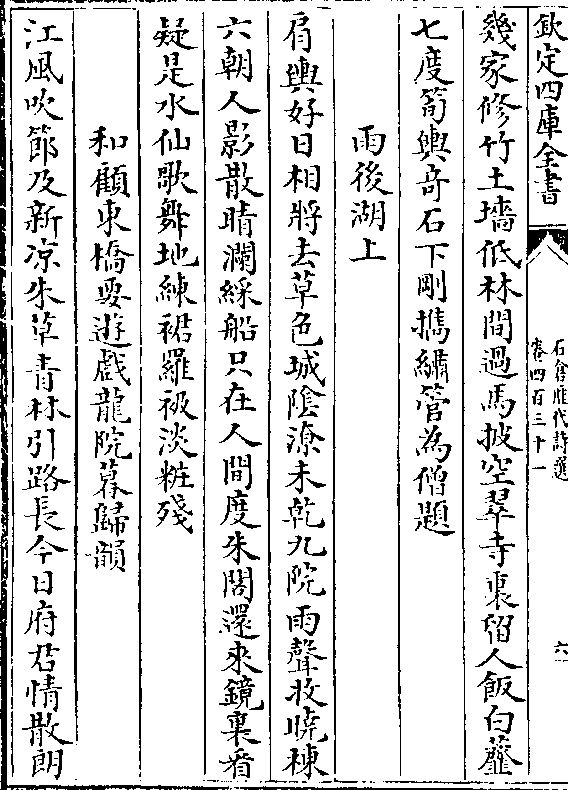 欽定四庫全書
石倉歷代詩選
卷四百三十一
六
幾家修竹土墻低林間過馬披空翠寺裏留人飯白虀
七度筍輿奇石下剛攜繡管為僧題
雨後湖上
肩輿好日相將去草色城陰潦未乾九院雨聲收曉棟
六朝人影散晴瀾綵船只在人間度朱閣還來鏡裏看
疑是水仙歌舞地練裙羅衱淡粧殘
和顧東橋要遊戲龍院暮歸韻
江風吹節及新凉朱草青林引路長今日府君情散朗